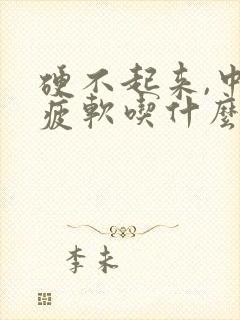 硬不起来,中
疲軟喫什麼
李未